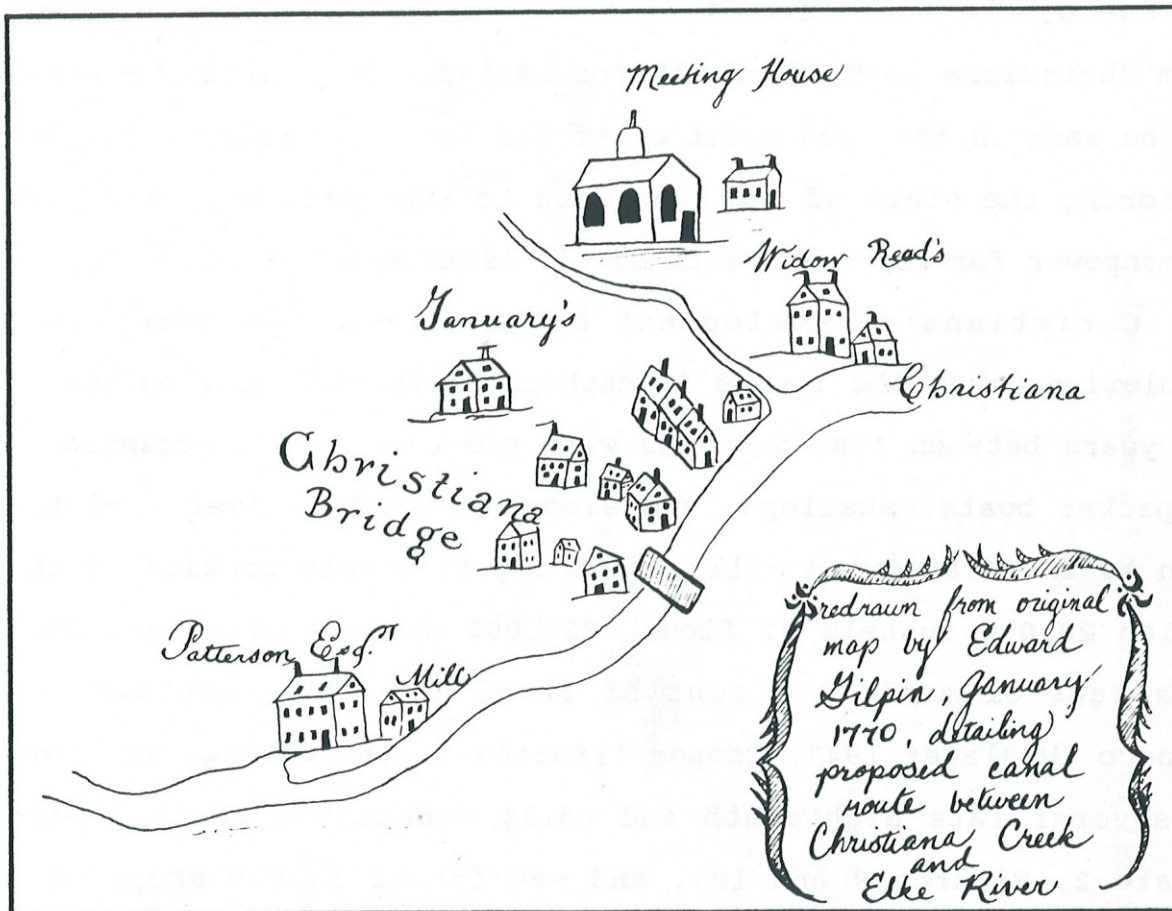 Meeting House
Widow Read's
January's
Christiana
Christiana
Bridge
Patterson Esqr.
Mill
redrawn from original
map by Edward
Gilpin, January
1770, detailing
proposed canal
route between
Christiana Creek
and
Elke River